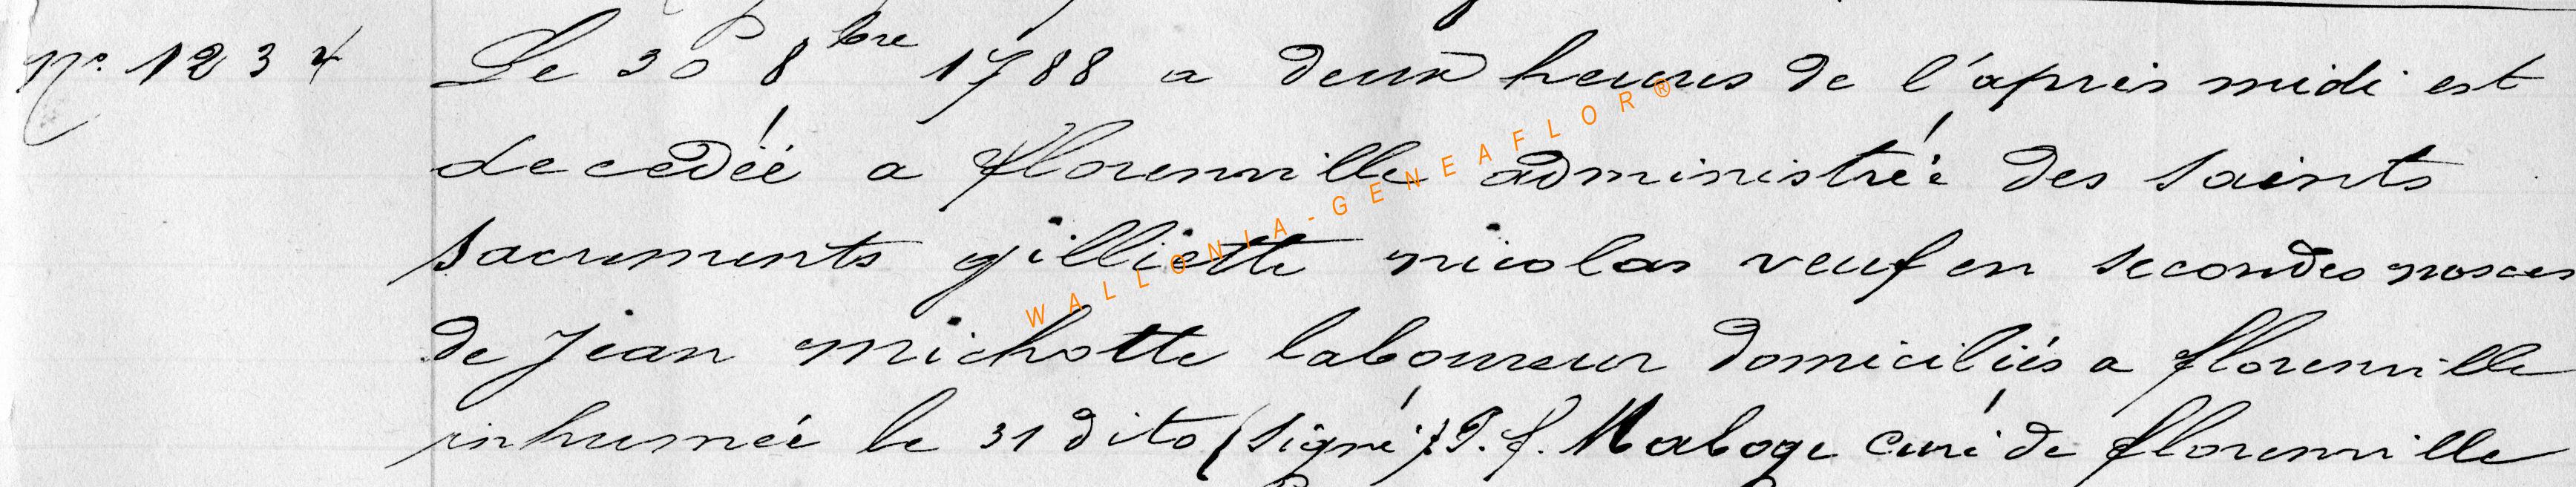 N° 1234 Le 30 8bre 1788 a deux heures de l'après midi est
decedée a florenville administrée des saints
sacrements gilliette nicolas veuf en secondes noces
de Jean michotte laboureur domiciliés a florenville
inhumée le 31 dito (signé) J. f. Maboge curé de florenville
WALLONIA-GENEAFLOR®